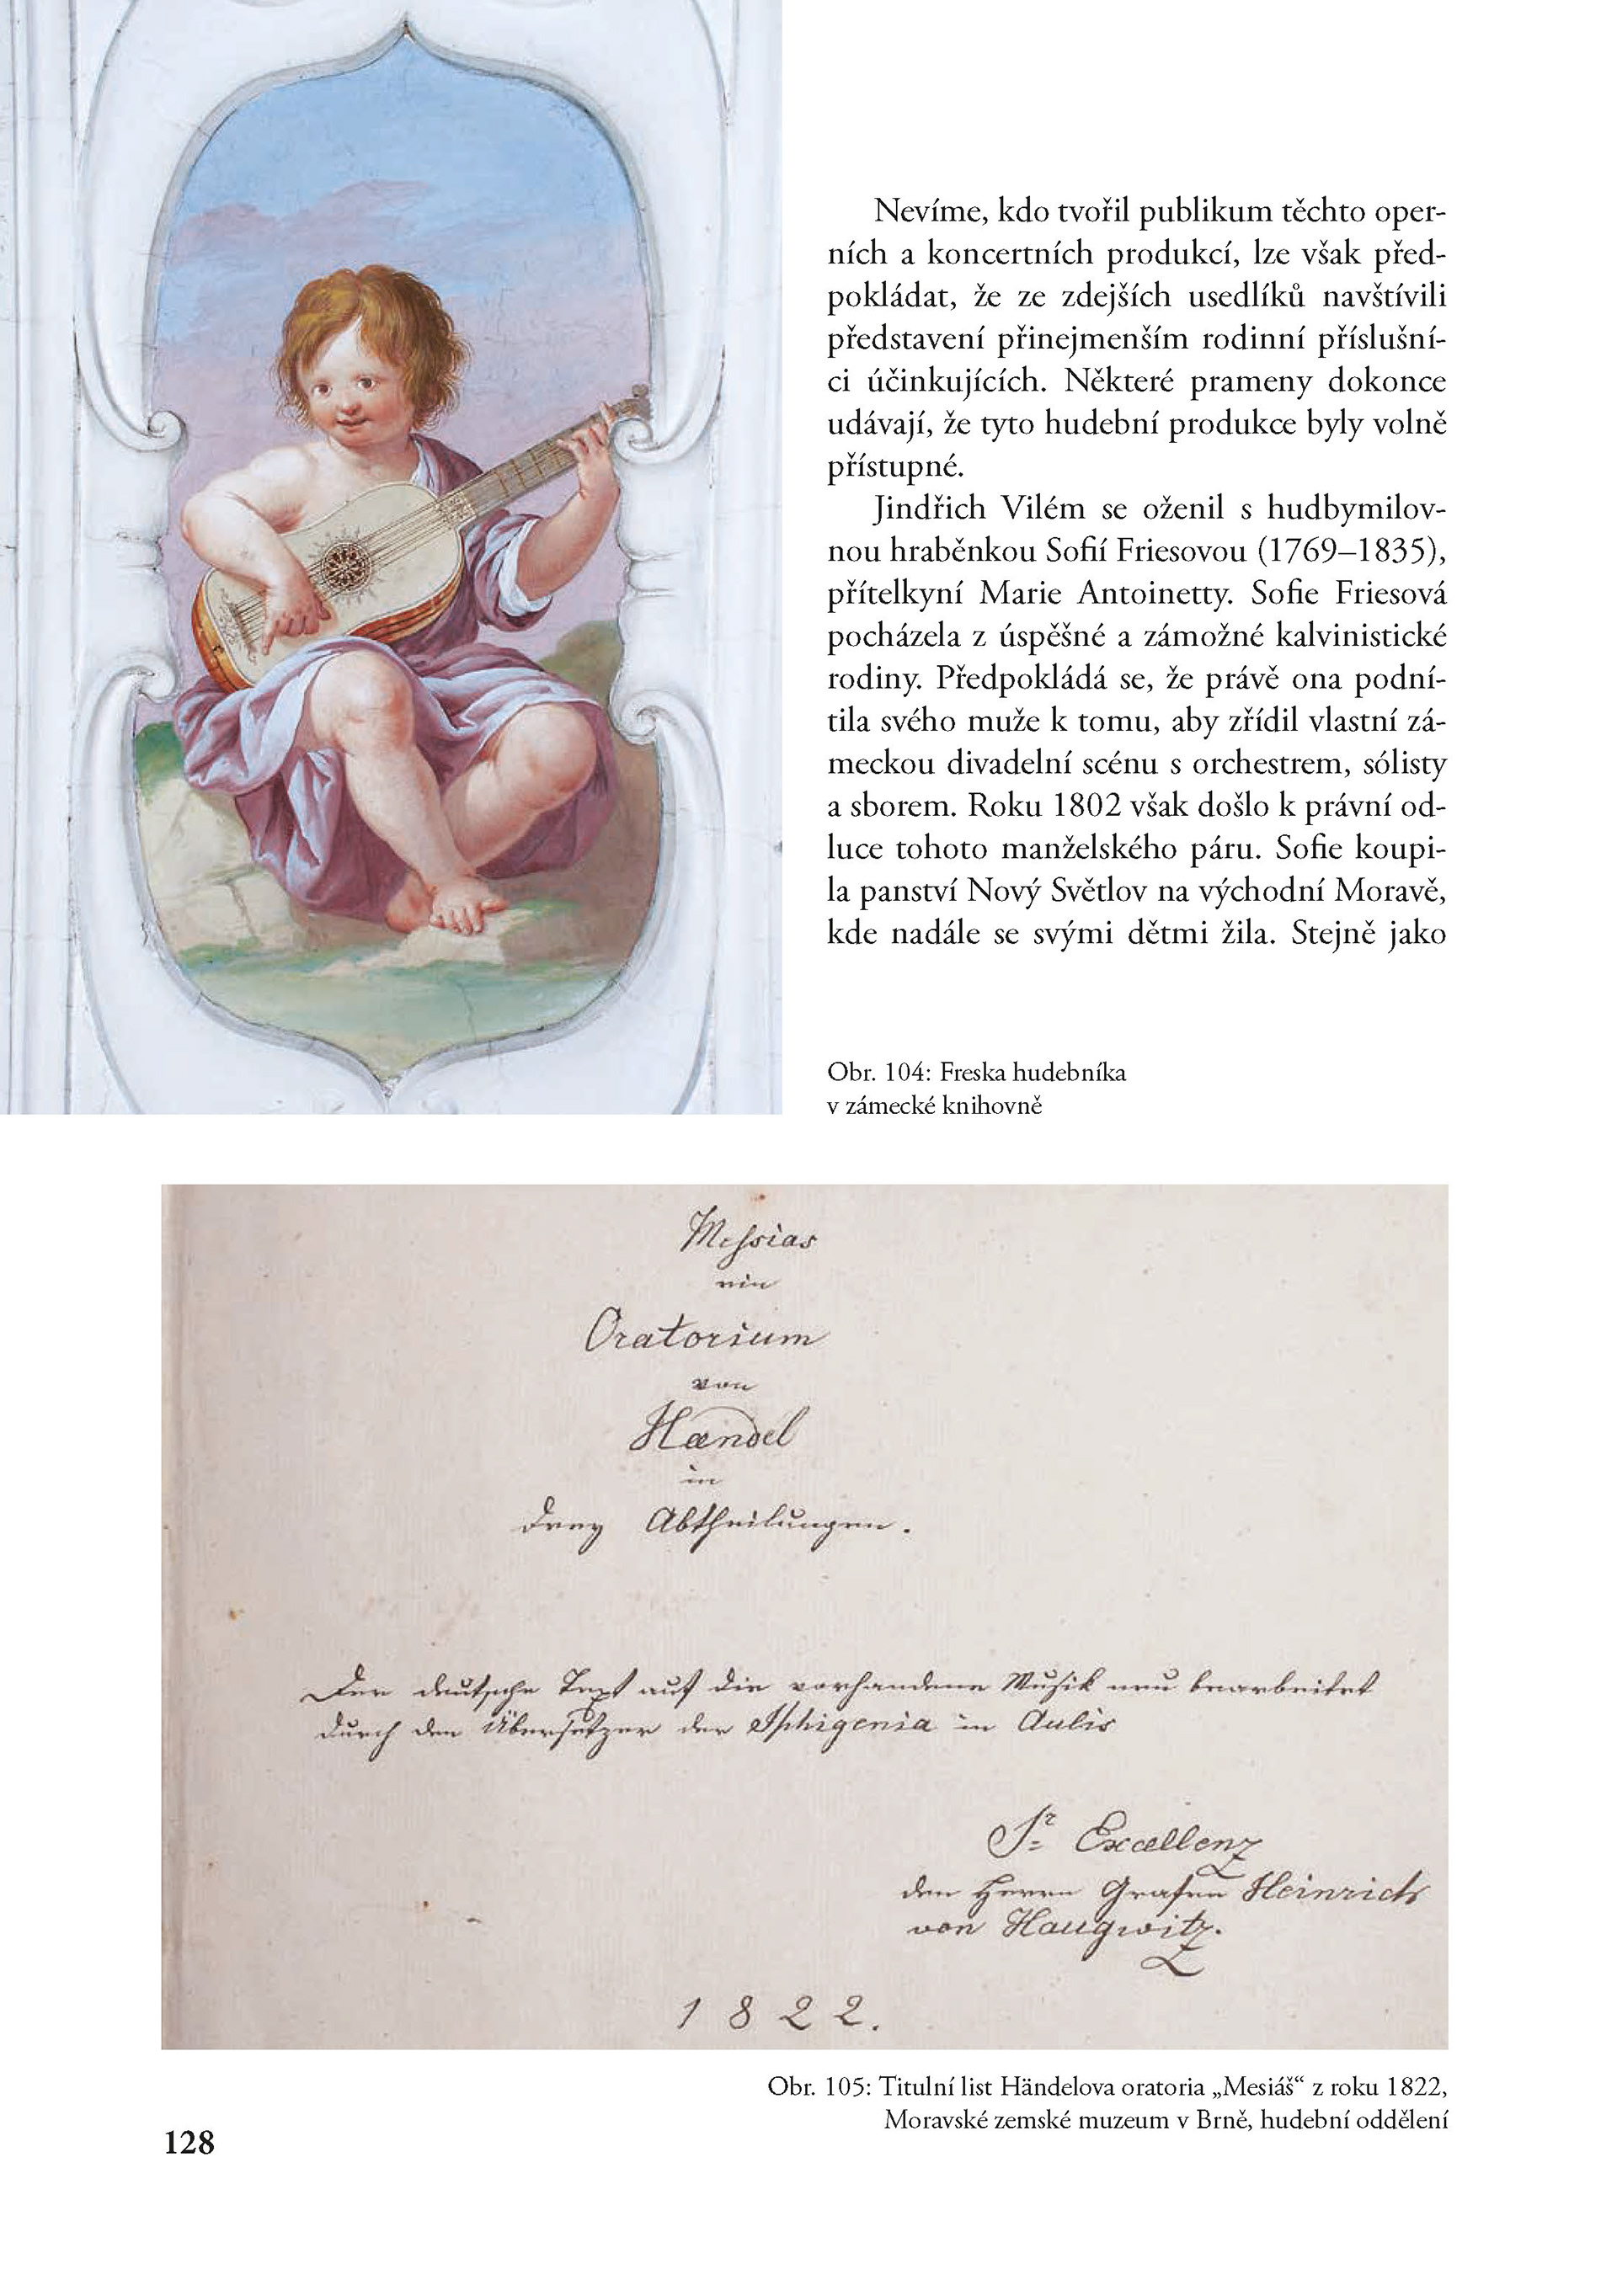 Nevíme, kdo tvořil publikum těchto oper-
ních a koncertních produkcí, lze však před-
pokládat, že ze zdejších usedlíků navštívili
představení přinejmenším rodinní příslušní-
ci účinkujících. Některé prameny dokonce
udávají, že tyto hudební produkce byly volně
přístupné.
Jindřich Vilém se oženil s hudbymilov-
nou hraběnkou Sofií Friesovou (1769–1835),
přítelkyní Marie Antoinetty. Sofie Friesová
pocházela z úspěšné a zámožné kalvinistické
rodiny. Předpokládá se, že právě ona podní-
tila svého muže k tomu, aby zřídil vlastní zá-
meckou divadelní scénu s orchestrem, sólisty
a sborem. Roku 1802 však došlo k právní od-
luce tohoto manželského páru. Sofie koupi-
la panství Nový Světlov na východní Moravě,
kde nadále se svými dětmi žila. Stejně jako
Obr. 104: Freska hudebníka
v zámecké knihovně
Messias
ein
Oratorium
von
Hændel
in
drey Abtheilungen.
Der deutsche Text auf die vorhandene Musik neu bearbeitet
durch den Übersetzer der Iphigenia in Aulis
Sr Excellenz
den Herrn Grafen Heinrich
von Haugwitz.
1822.
Obr. 105: Titulní list Händelova oratoria „Mesiáš“ z roku 1822,
Moravské zemské muzeum v Brně, hudební oddělení
128